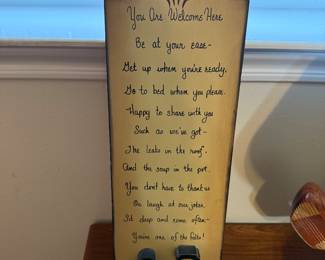 You Are Welcome Here
Be at your ease-
Get up when you're ready,
Go to bed when you please.
Happy to share with you
Such as we've got-
The leaks in the roof.
And the soup in the pot.
You don't have to thank us
Or laugh at our jokes.
Sit deep and come often-
You're one of the folks!